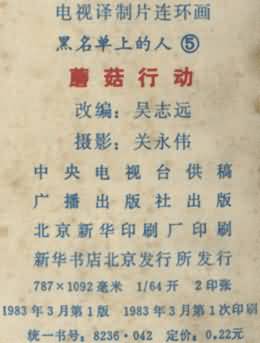 电视译制片连环画
黑名单上的人⑤
蘑菇行动
改编：吴志远
摄影：关永伟
中央电视台供稿
广播出版社出版
北京新华印刷厂印刷
新华书店北京发行所发行
787×1092毫米 1/64开 2印张
1983年3月第1版 1983年3月第1次印刷
统一书号：8236·042 定价：0.22元